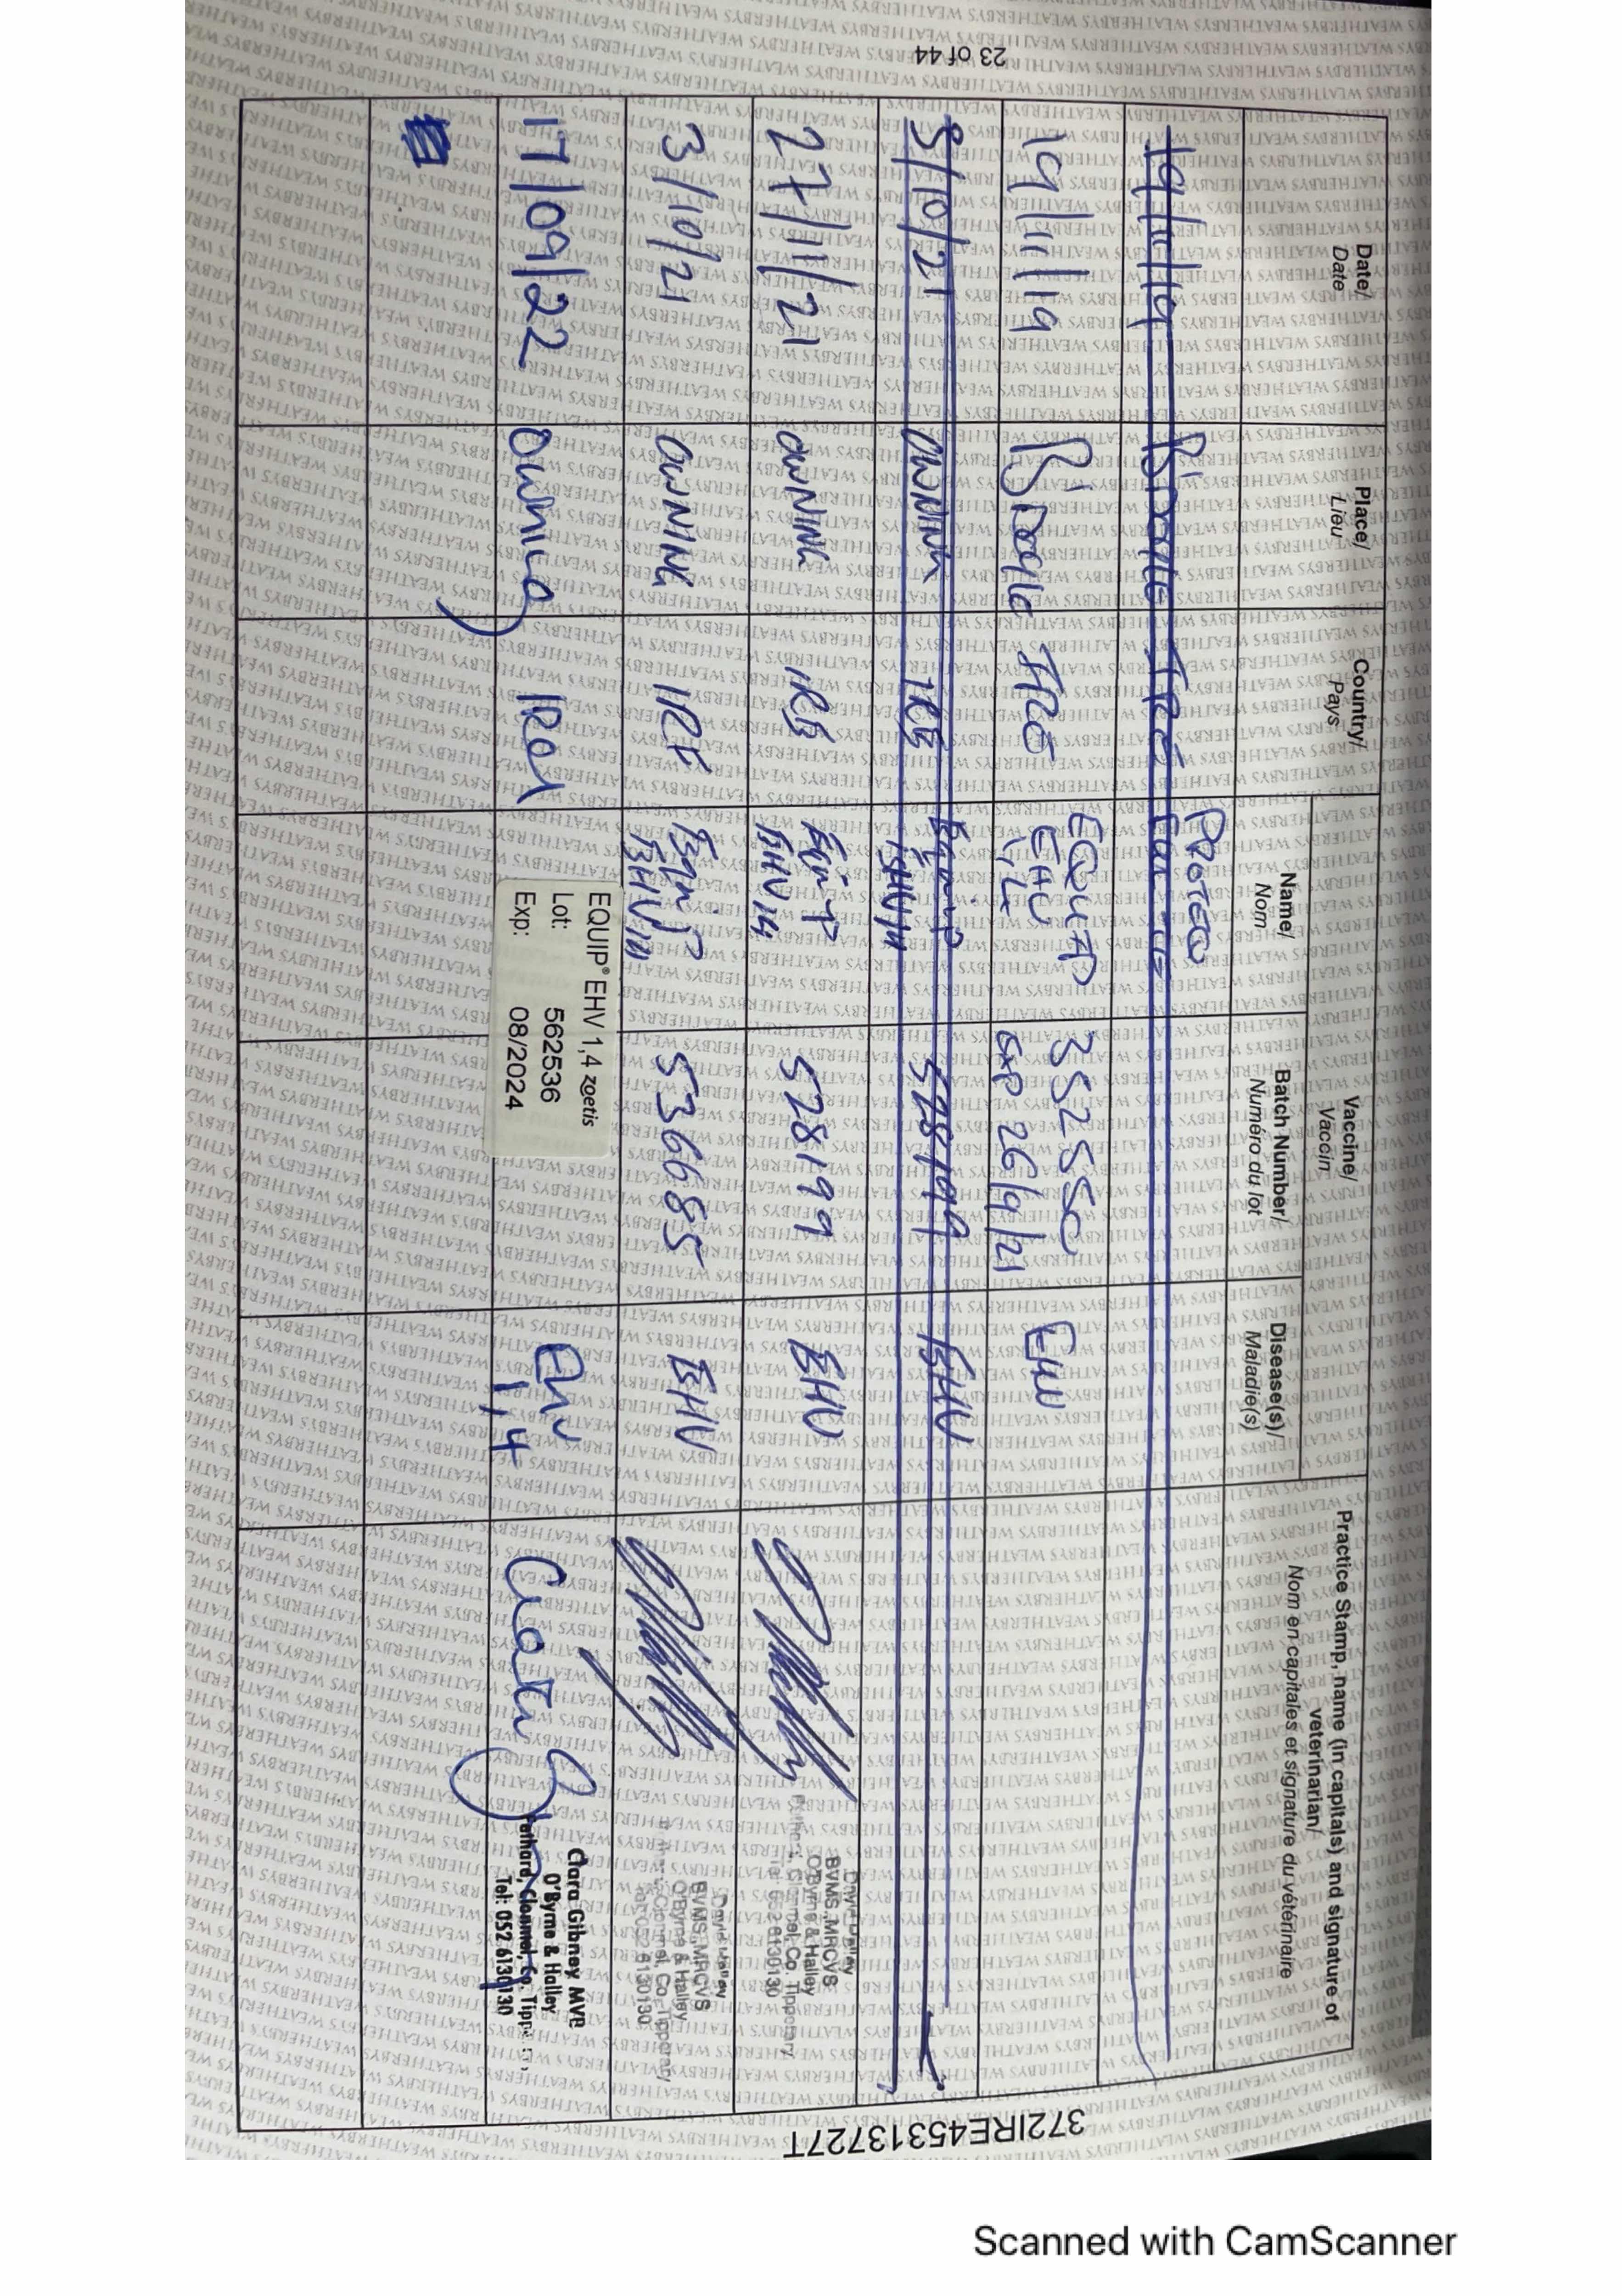 23 of 44
Date/ Date
Place/ Lieu
Country/ Pays
Vaccine/ Vaccin
Name/ Nom
Batch Number/ Numéro du lot
Disease(s)/ Maladie(s)
Practice Stamp, name (in capitals) and signature of veterinarian/
Nom en capitales et signature du vétérinaire
19/11/19 IRE PROTEQ
19/11/19 IRE EQUIP EHV 1,4 35255C EXP 26/9/21 EHV
3/10/21 OWNING IRE Equip EHV 14 528199 EHV
27/11/21 OWNING IRE Equip EHV 14 528199 EHV
David Halley
BVMS, MRCVS
O'Byrne & Halley
Fethard, Clonmel, Co. Tipperary
Tel: 052 6130130
3/10/21 OWNING IRE Equip EHV 14 536685 EHV
David Halley
BVMS, MRCVS
O'Byrne & Halley
Fethard, Clonmel, Co. Tipperary
Tel: 052 6130130
17/09/22 Owning IRel
EQUIP® EHV 1,4 zoetis
Lot: 562536
Exp: 08/2024
EHV 1,4
Clara Gibney MVB
O'Byrne & Halley
Fethard, Clonmel, Co. Tipp
Tel: 052 6130130
372IRE45313727T
WEATHERBYS WEATHERBYS WEATHERBYS
Scanned with CamScanner